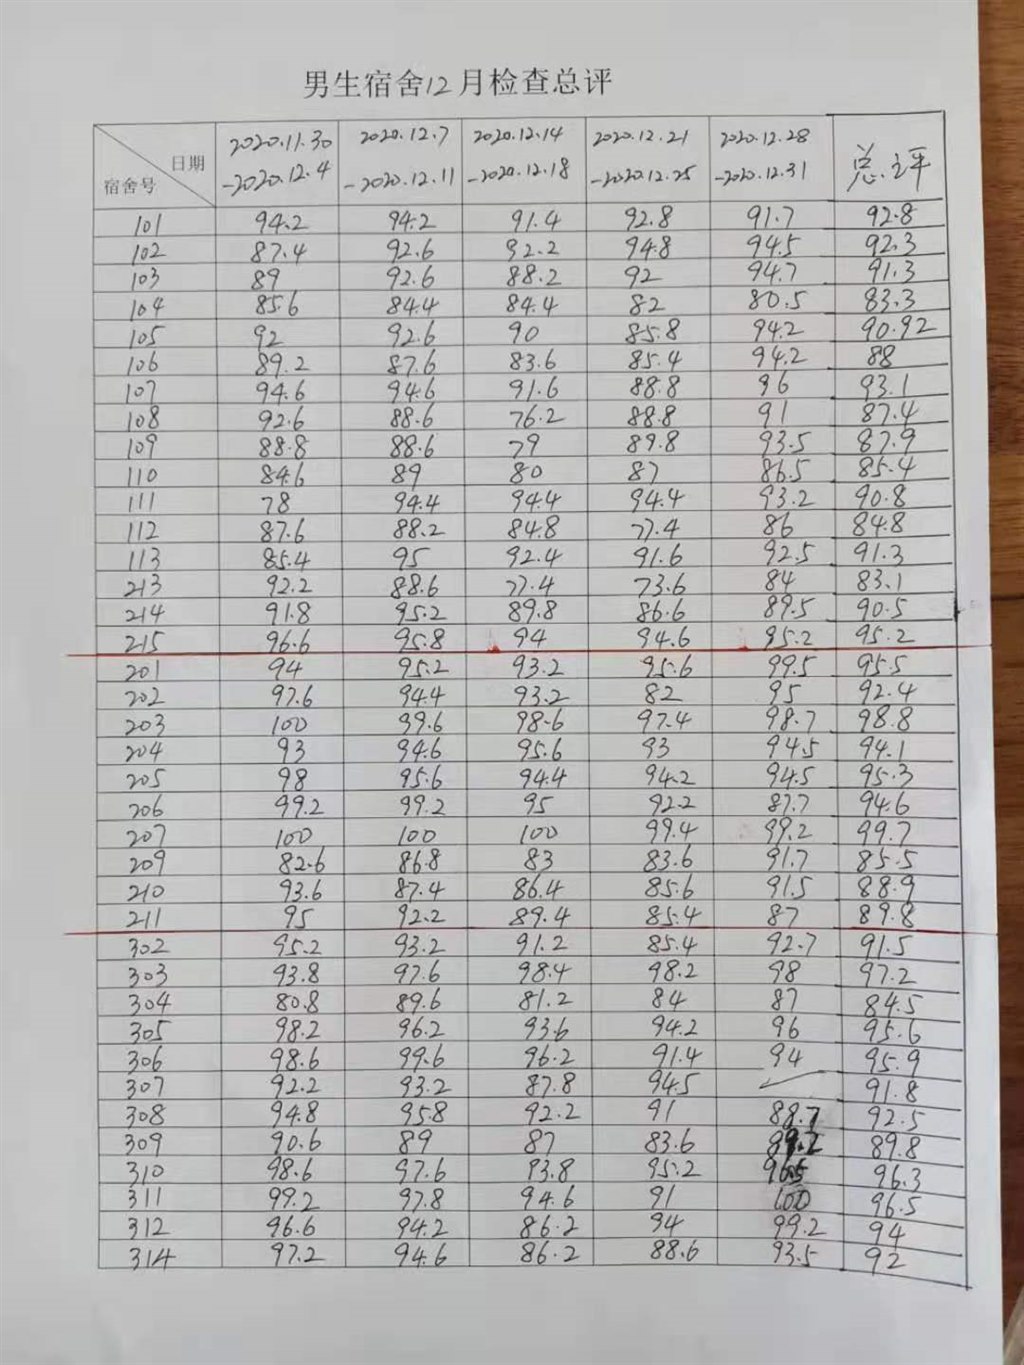 男生宿舍12月检查总评
日期 宿舍号 2020.11.30-2020.12.4 2020.12.7-2020.12.11 2020.12.14-2020.12.18 2020.12.21-2020.12.25 2020.12.28-2020.12.31 总评
101 94.2 94.2 91.4 92.8 91.7 92.8
102 87.4 92.6 92.2 94.8 94.5 92.3
103 89 92.6 88.2 92 94.7 91.3
104 85.6 84.4 84.4 82 80.5 83.3
105 92 92.6 90 85.8 94.2 90.92
106 89.2 87.6 83.6 85.4 94.2 88
107 94.6 94.6 91.6 88.8 96 93.1
108 92.6 88.6 76.2 88.8 91 87.4
109 88.8 88.6 79 89.8 93.5 87.9
110 84.6 89 80 87 86.5 85.4
111 78 94.4 94.4 94.4 93.2 90.8
112 87.6 88.2 84.8 77.4 86 84.8
113 85.4 95 92.4 91.6 92.5 91.3
213 92.2 88.6 77.4 73.6 84 83.1
214 91.8 95.2 89.8 86.6 89.5 90.5
215 96.6 95.8 94 94.6 95.2 95.2
201 94 95.2 93.2 95.6 99.5 95.5
202 97.6 94.4 93.2 82 95 92.4
203 100 99.6 98.6 97.4 98.7 98.8
204 93 94.6 95.6 93 94.5 94.1
205 98 95.6 94.4 94.2 94.5 95.3
206 99.2 99.2 95 92.2 87.7 94.6
207 100 100 100 99.4 99.2 99.7
209 82.6 86.8 83 83.6 91.7 85.5
210 93.6 87.4 86.4 85.6 91.5 88.9
211 95 92.2 89.4 85.4 87 89.8
302 95.2 93.2 91.2 85.4 92.7 91.5
303 93.8 97.6 98.4 98.2 98 97.2
304 80.8 89.6 81.2 84 87 84.5
305 98.2 96.2 93.6 94.2 96 95.6
306 98.6 99.6 96.2 91.4 94 95.9
307 92.2 93.2 87.8 94.5 91.8
308 94.8 95.8 92.2 91 88.7 92.5
309 90.6 89 87 83.6 89.8
310 98.6 97.6 93.8 95.2 96.5 96.3
311 99.2 97.8 94.6 91 100 96.5
312 96.6 94.2 86.2 94 99.2 94
314 97.2 94.6 86.2 88.6 93.5 92